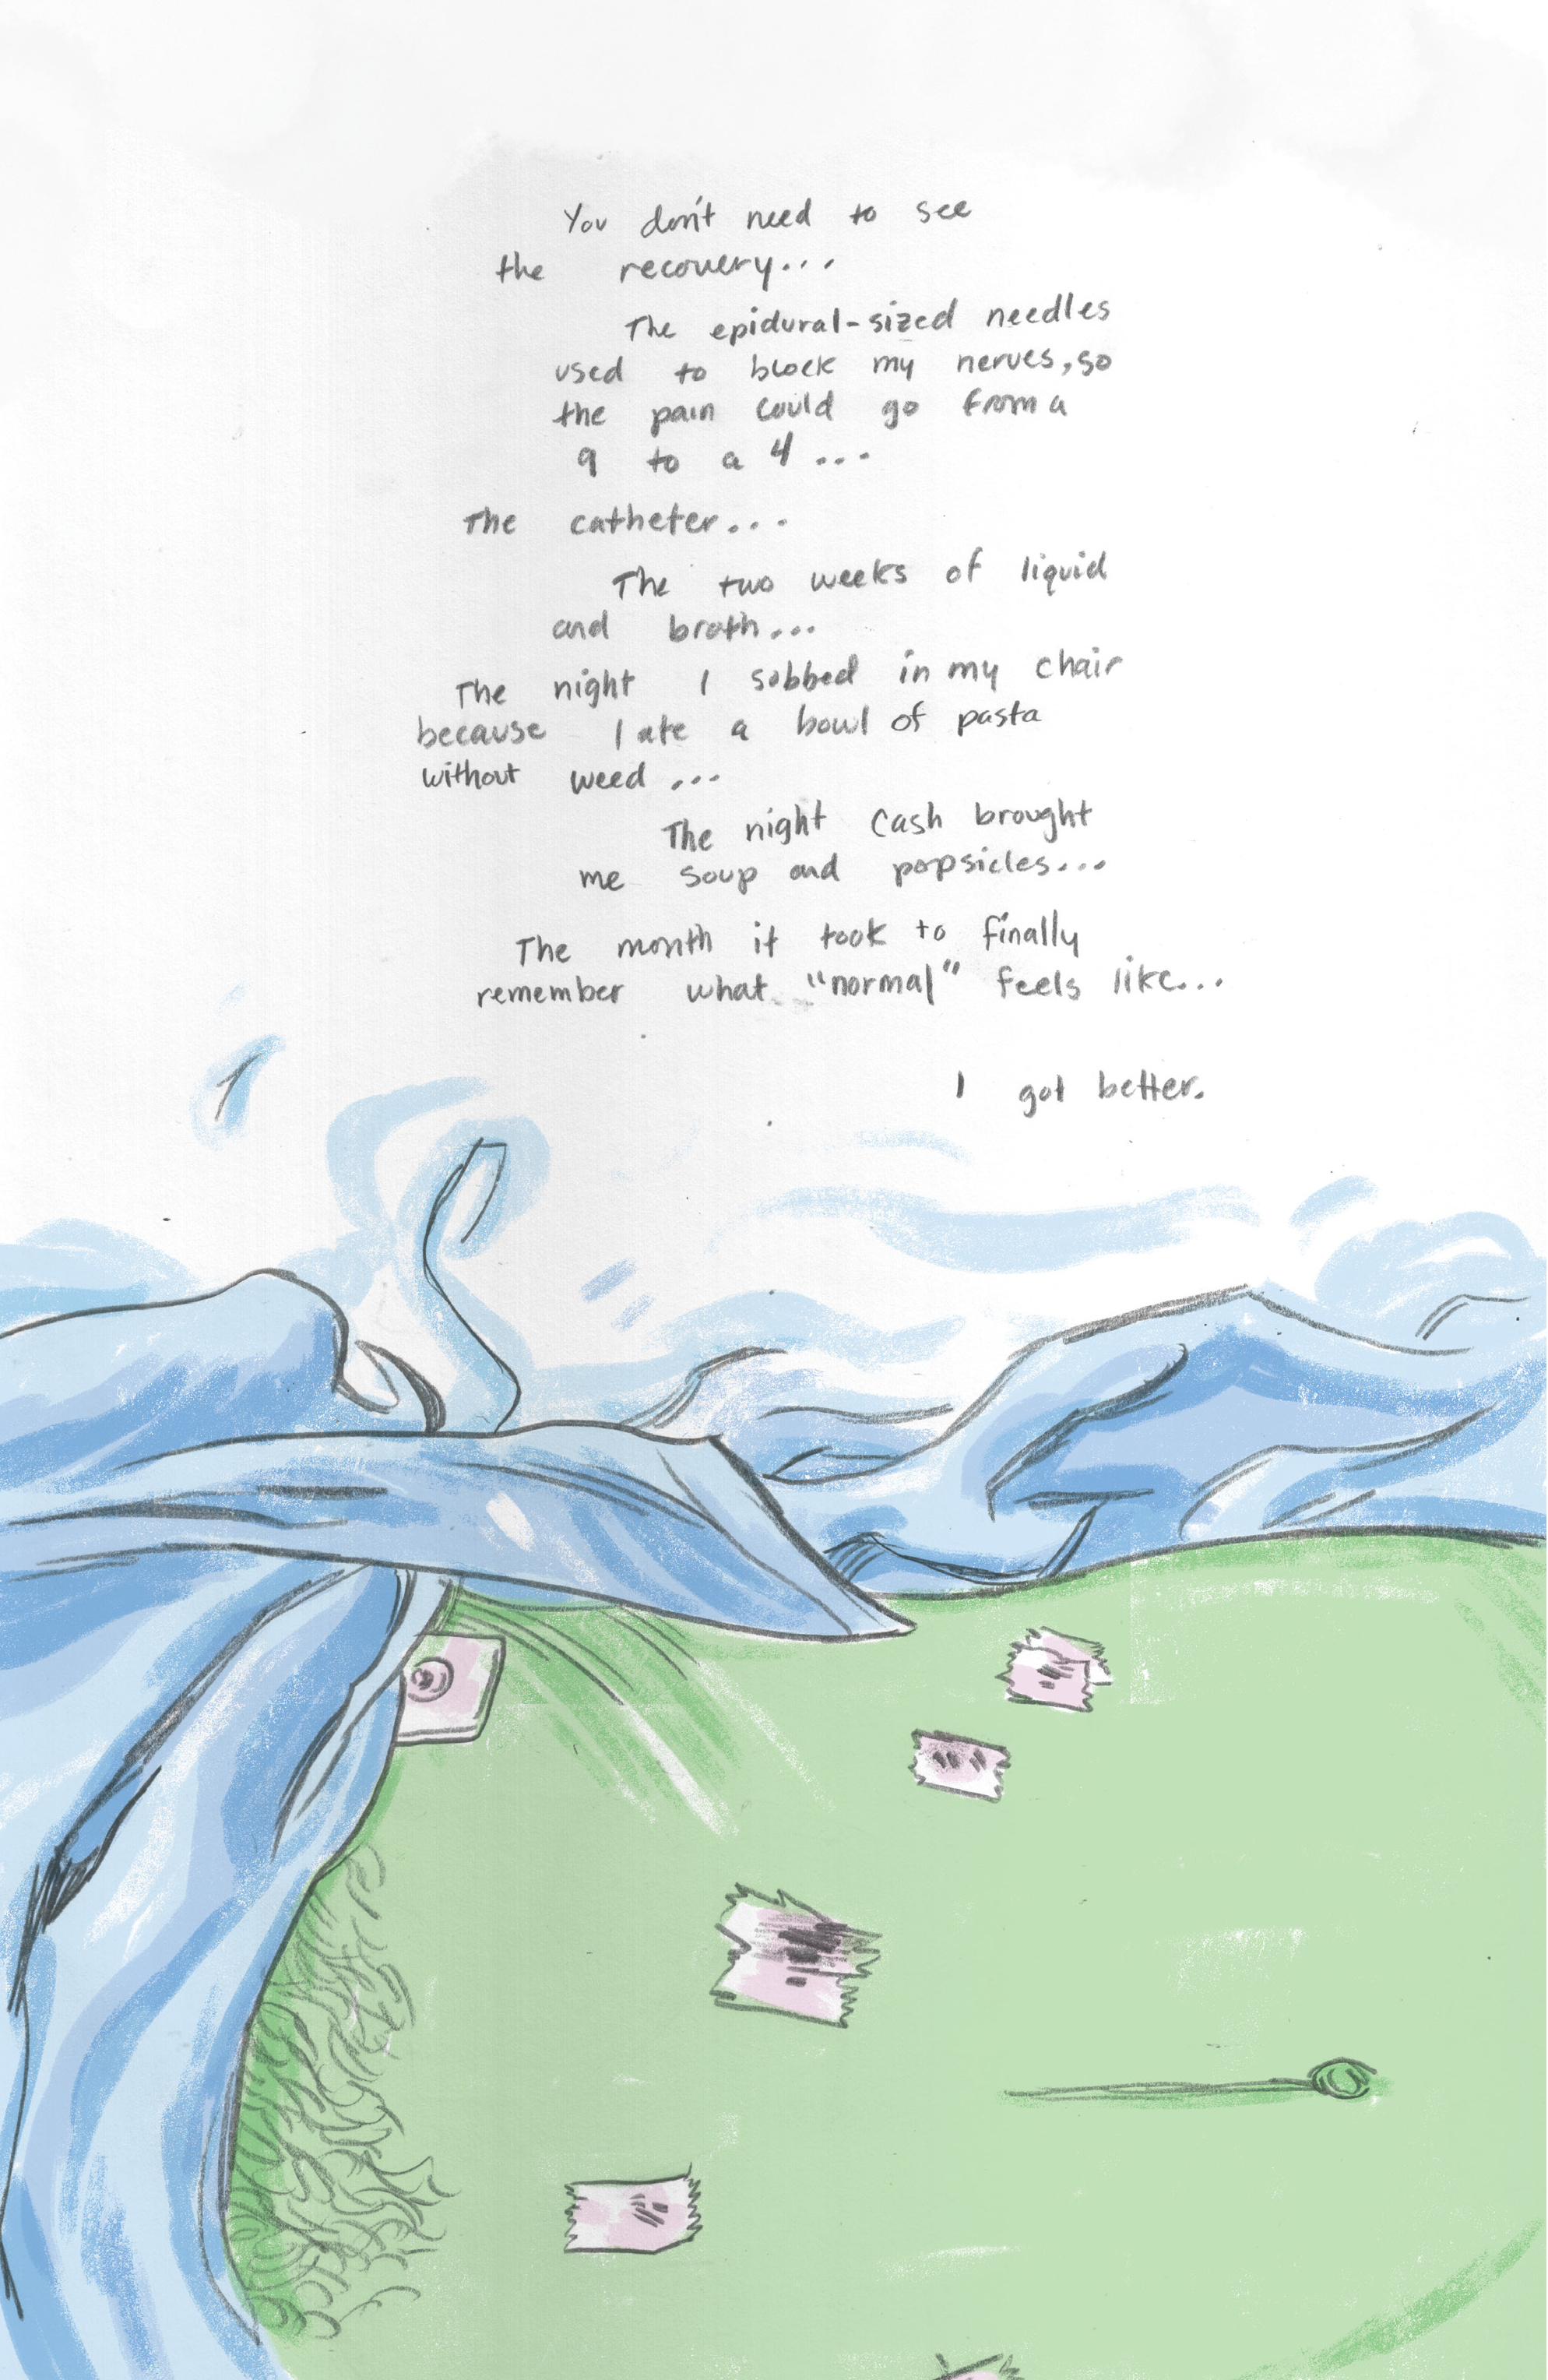 You don't need to see
the recovery...
The epidural-sized needles
used to block my nerves, so
the pain could go from a
9 to a 4...
The catheter...
The two weeks of liquid
and broth...
The night I sobbed in my chair
because I ate a bowl of pasta
without weed...
The night Cash brought
me soup and popsicles...
The month it took to finally
remember what "normal" feels like...
I got better.